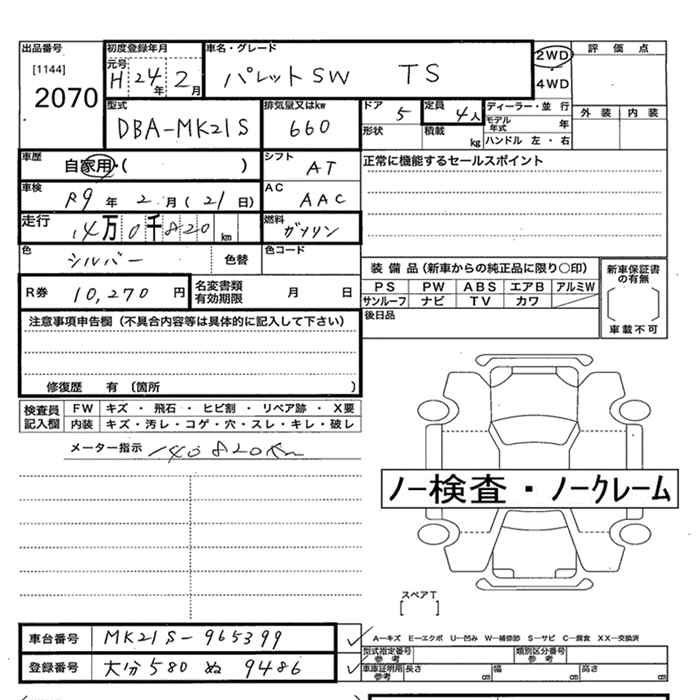 出品番号
[1144]
2070
初度登録年月
元号
H 24年 2月
車名・グレード
パレットSW TS
2WD
4WD
評価点
外装 内装
型式
DBA-MK21S
排気量又はkw
660
ドア
5
形状
定員
4人
積載
kg
ディーラー・並行
モデル年式 年
ハンドル 左・右
車歴
自家用・( )
シフト
AT
正常に機能するセールスポイント
車検
R9年 2月(21日)
AC
AAC
走行
14万0千820 km
燃料
ガソリン
色
シルバー
色替
色コード
R券
10,270円
名変書類有効期限
月 日
装備品(新車からの純正品に限り○印)
PS PW ABS エアB アルミW
サンルーフ ナビ TV カワ
後日品
新車保証書の有無
[ ]
車載不可
注意事項申告欄(不具合内容等は具体的に記入して下さい)
修復歴 有(箇所 )
検査員記入欄
FW キズ・飛石・ヒビ割・リペア跡・X要
内装 キズ・汚レ・コゲ・穴・スレ・キレ・破レ
メーター指示 140820Km
ノー検査・ノークレーム
スペアT
[ ]
車台番号
MK21S-965399
登録番号
大分580 ぬ 9486
A−キズ E−エクボ U−凹み W−補修跡 S−サビ C−腐食 XX−交換済
型式指定番号 参考
類別区分番号 参考
車庫証明用 参考
長さ cm
幅 cm
高さ cm